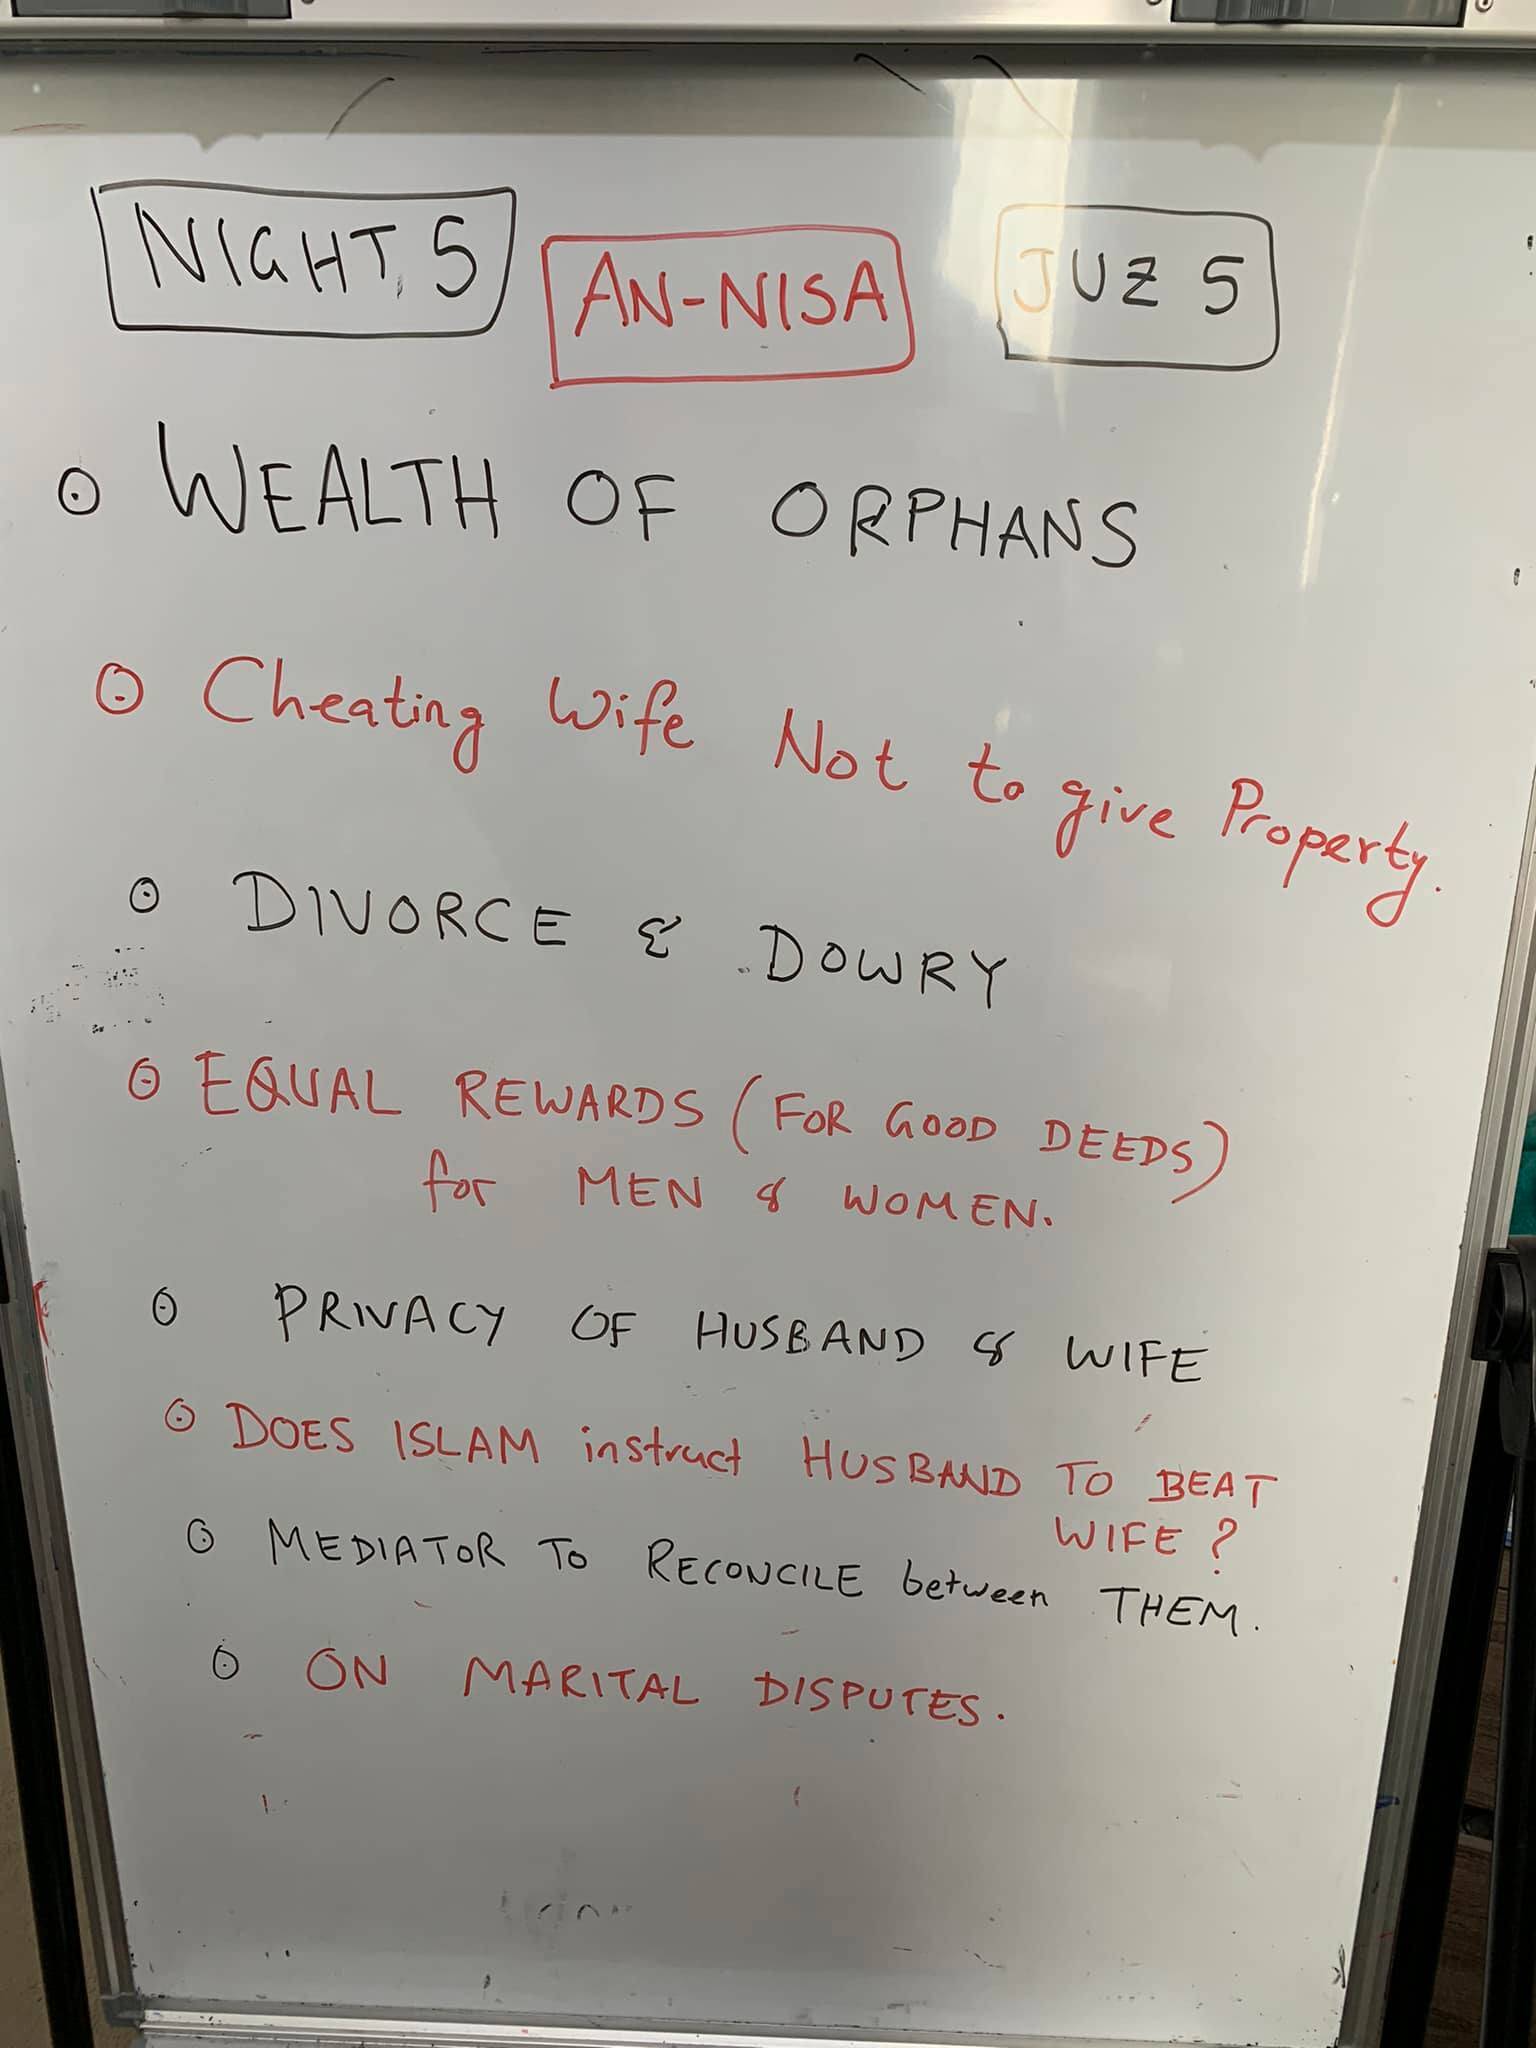 NIGHT 5
AN-NISA
JUZ 5
⊙ WEALTH OF ORPHANS
⊙ Cheating Wife Not to give Property.
⊙ DIVORCE & DOWRY
⊙ EQUAL REWARDS (FOR GOOD DEEDS)
for MEN & WOMEN.
⊙ PRIVACY OF HUSBAND & WIFE
⊙ DOES ISLAM instruct HUSBAND TO BEAT
WIFE?
⊙ MEDIATOR TO RECONCILE between THEM.
⊙ ON MARITAL DISPUTES.